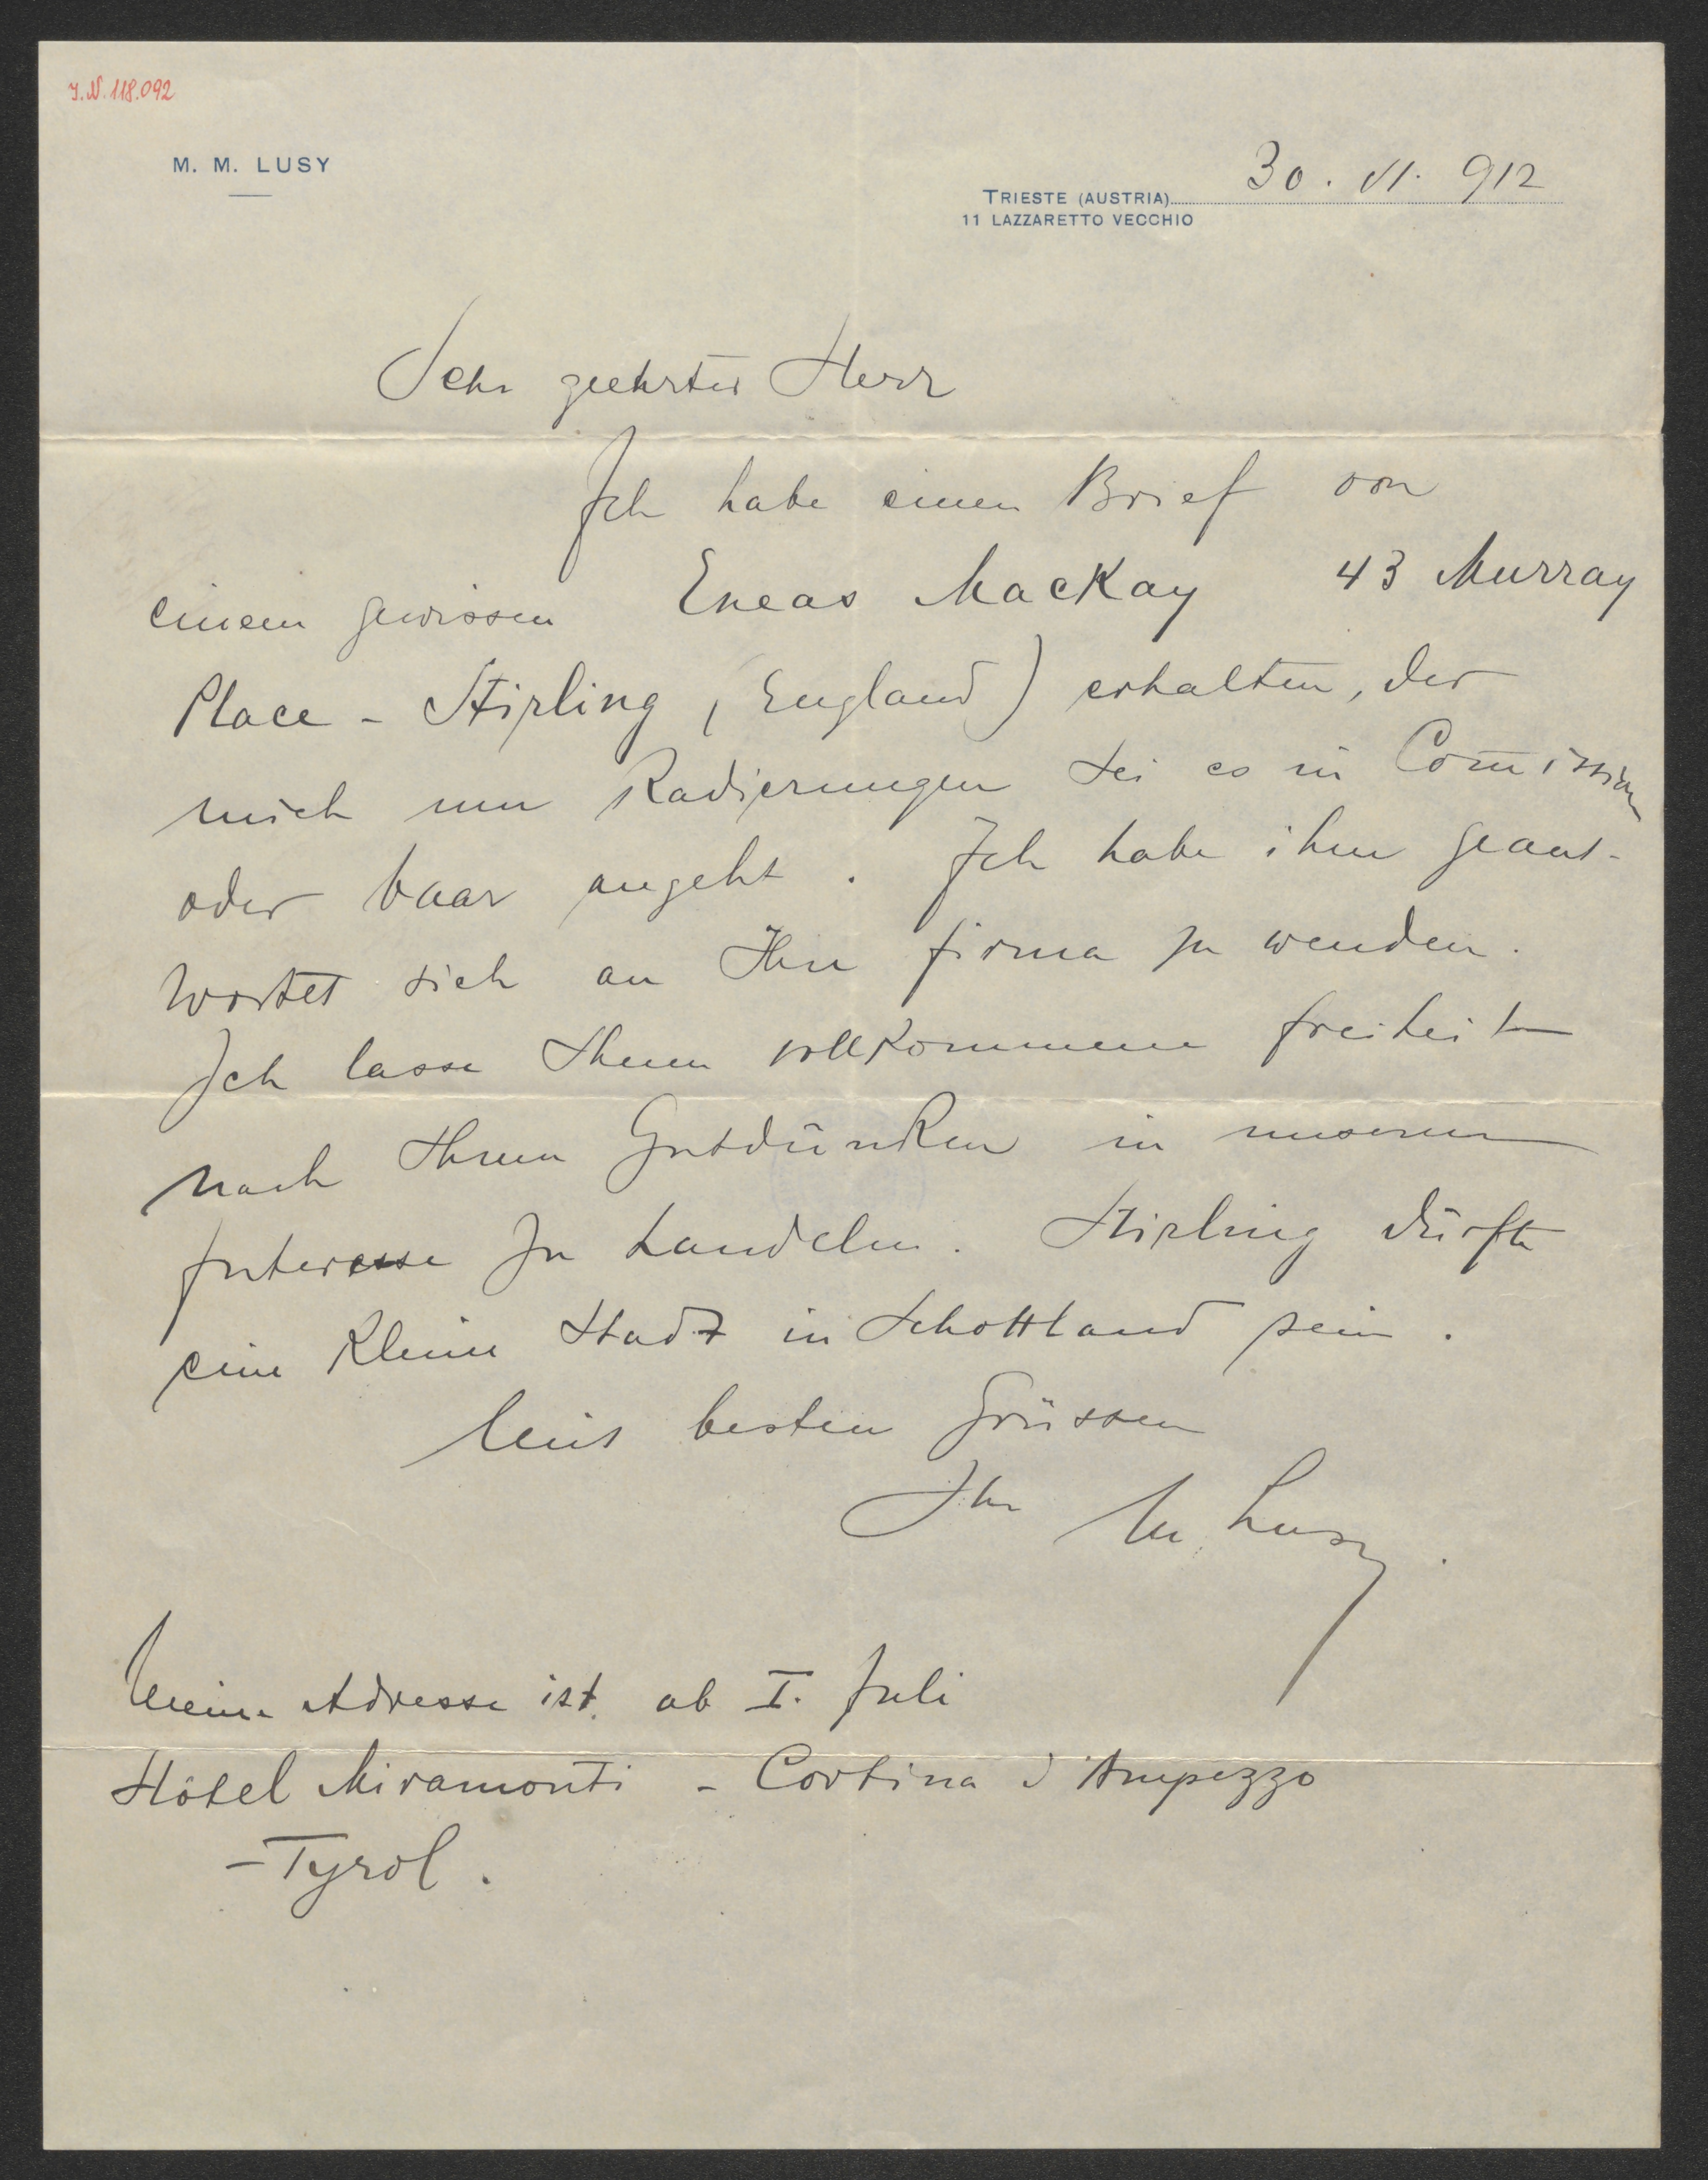 J.N. 118.092
M. M. LUSY
TRIESTE (AUSTRIA) 30. VI. 912
11 LAZZARETTO VECCHIO
Sehr geehrter Herr
Ich habe einen Brief von
einem gewissen Eneas Mackay 43 Murray
Place - Stirling (England) erhalten, der
mich um Radierungen sei es in Com̄ission
oder baar angeht. Ich habe ihm geant-
wortet sich an Ihre firma zu wenden.
Ich lasse Ihnen vollkommene freiheit
nach Ihrem Gutdünken in unserem
Interesse zu handeln. Stirling dürfte
eine kleine Stadt in Schottland sein.
Mit besten Grüssen
Ihr M. Lusy.
Meine Adresse ist ab I. Juli
Hôtel Miramonti - Cortina d'Ampezzo
- Tyrol.